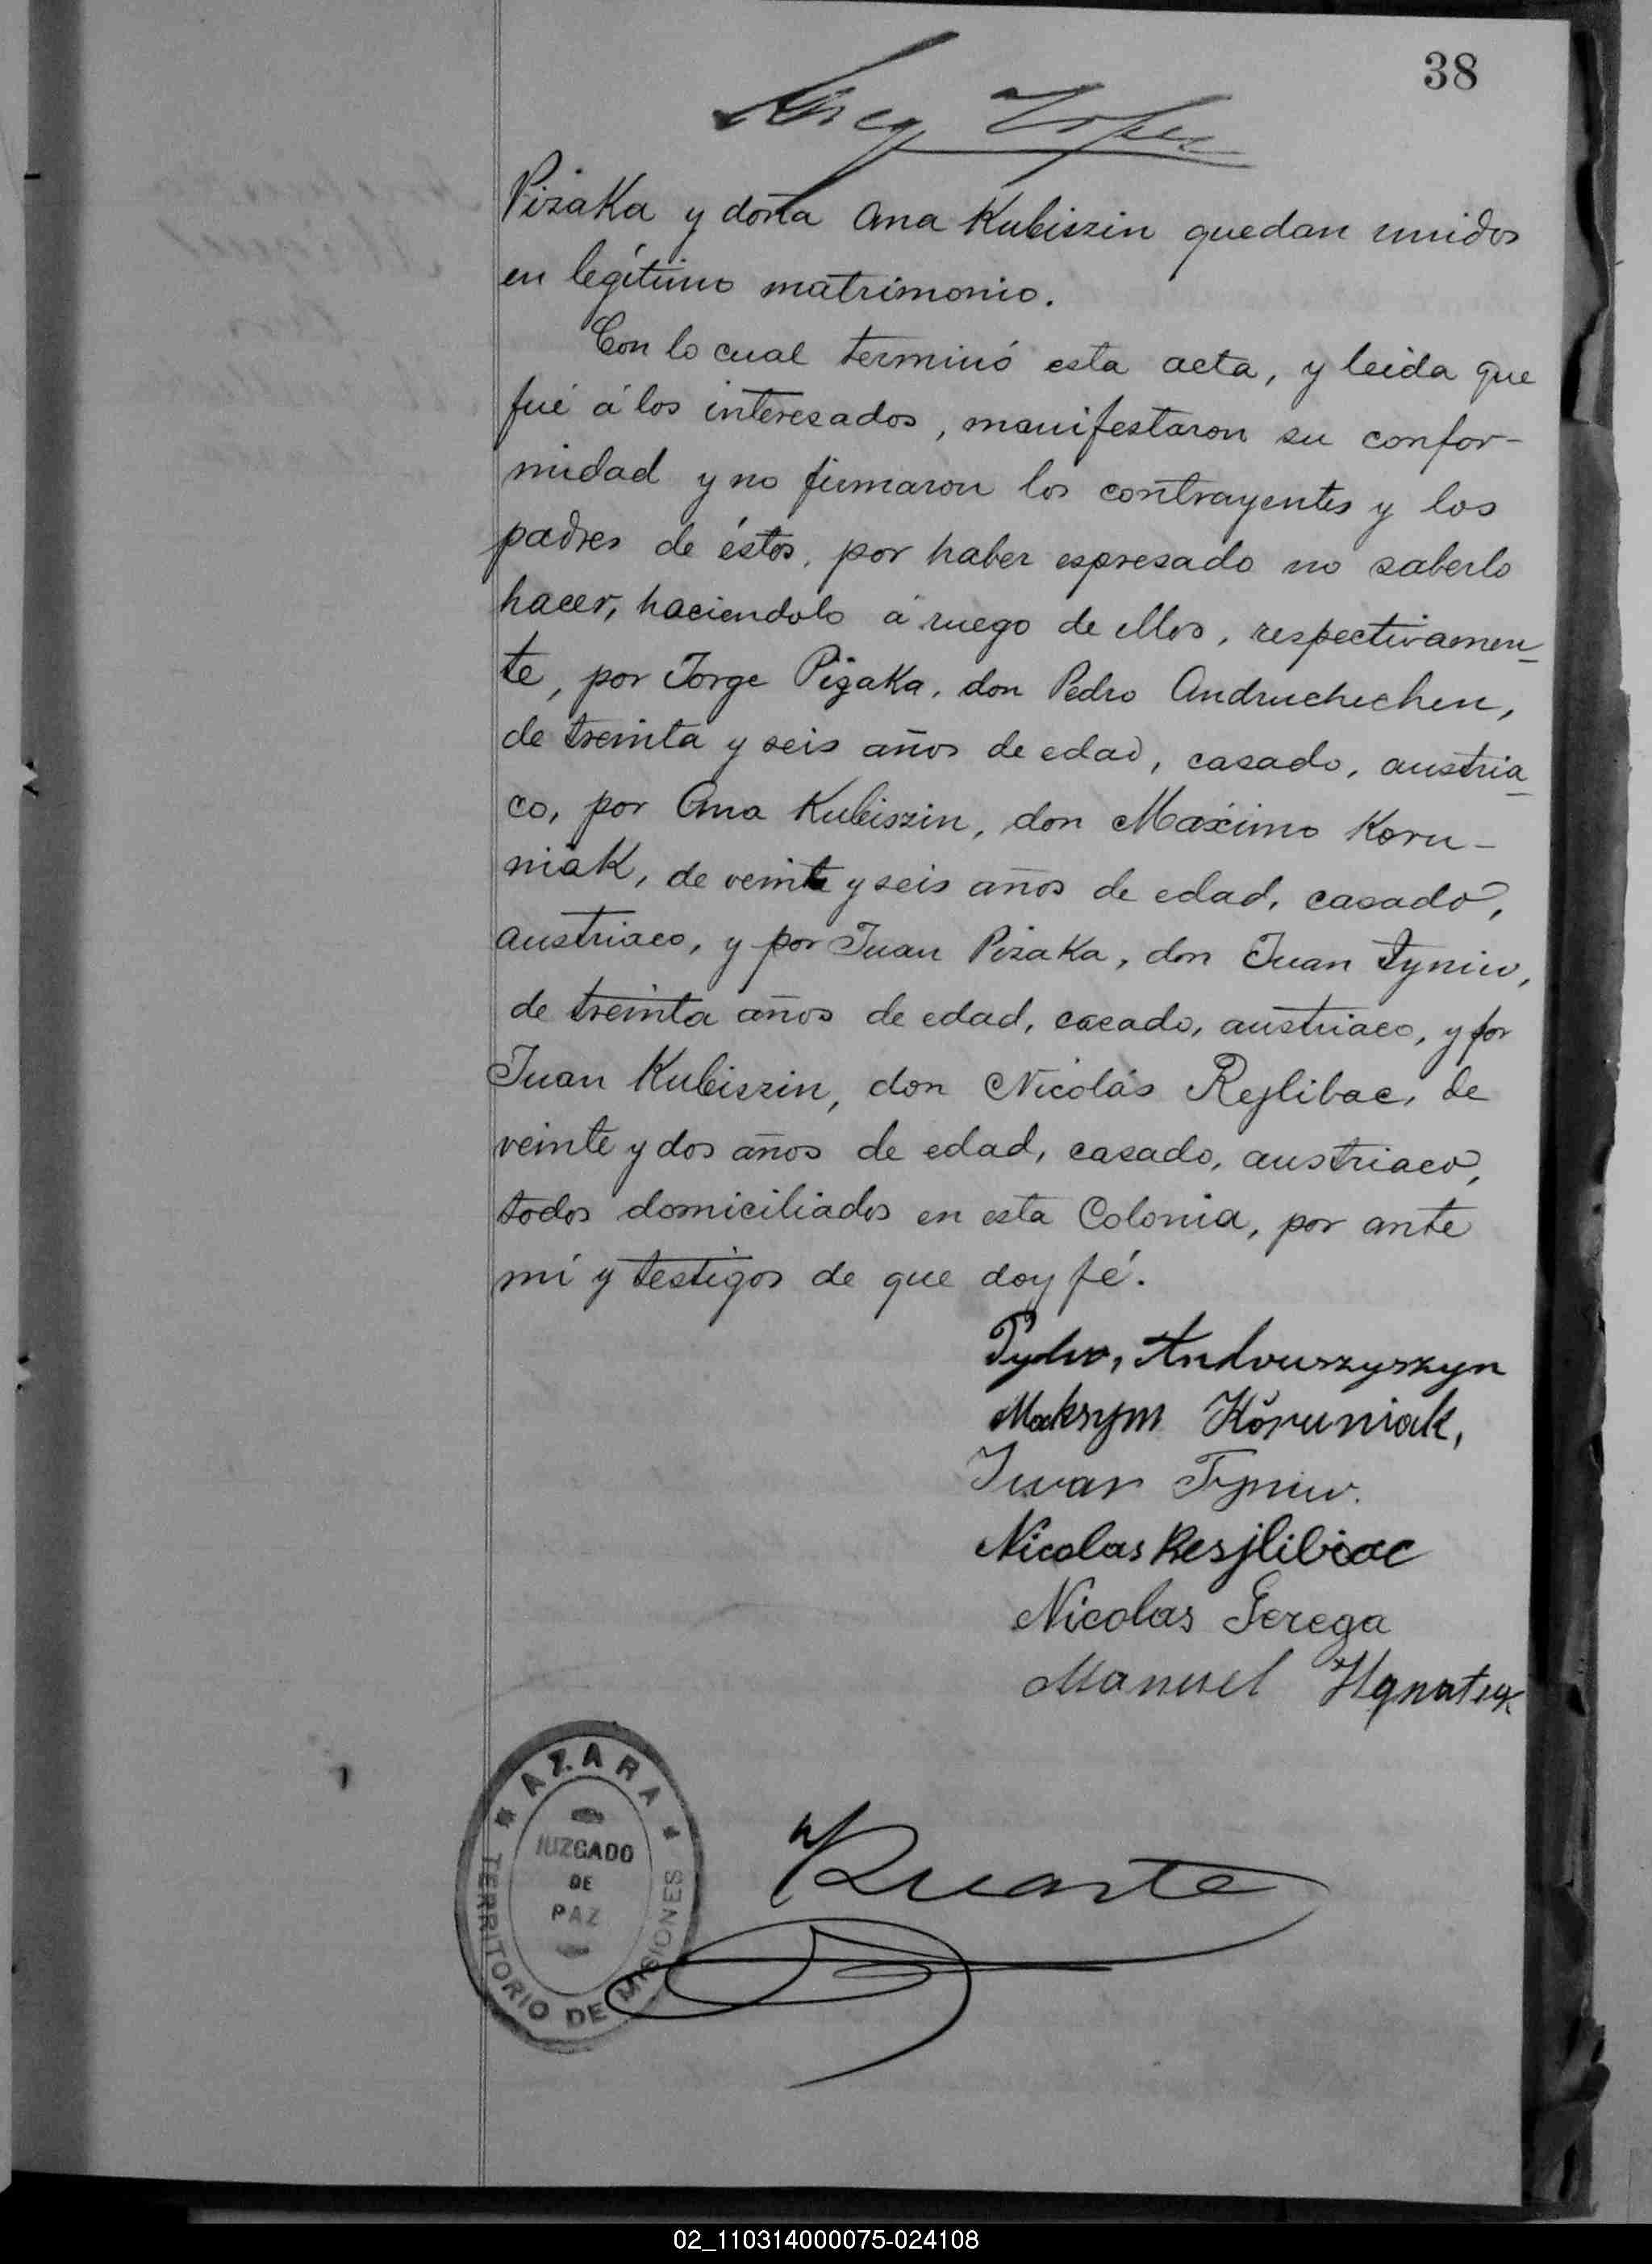 38
Pizaka y doña Ana Kubiszin quedan unidos
en legítimo matrimonio.
Con lo cual terminó esta acta, y leida que
fué á los interesados, manifestaron su confor-
midad y no firmaron los contrayentes y los
padres de éstos, por haber espresado no saberlo
hacer, haciendolo á ruego de ellos, respectivamen-
te, por Jorge Pizaka, don Pedro Andruchechen,
de treinta y seis años de edad, casado, austria-
co, por Ana Kubiszin, don Máximo Koru-
niak, de veinte y seis años de edad, casado,
austriaco, y por Juan Pizaka, don Juan Tyniw,
de treinta años de edad, casado, austriaco, y por
Juan Kubiszin, don Nicolás Rejlibac, de
veinte y dos años de edad, casado, austriaco,
todos domiciliados en esta Colonia, por ante
mí y testigos de que doy fé.
Pydro, Andruszyszyn
Maksym Koruniak,
Iwan Tyniw.
Nicolas Resjlibiac
Nicolas Gerega
Manuel
AZARA
JUZGADO
DE
PAZ
TERRITORIO DE MISIONES
Duarte
02_110314000075-024108